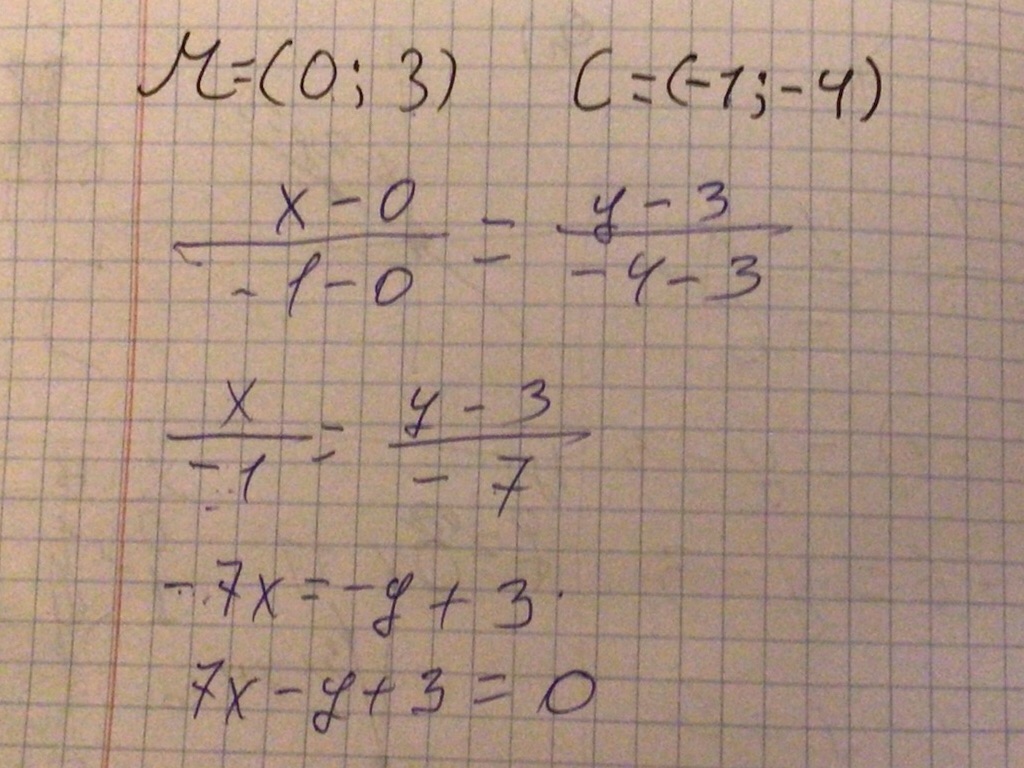 M=(0; 3) C=(-1;-4)
x-0/-1-0 = y-3/-4-3
x/-1 = y-3/-7
-7x=-y+3
7x-y+3=0